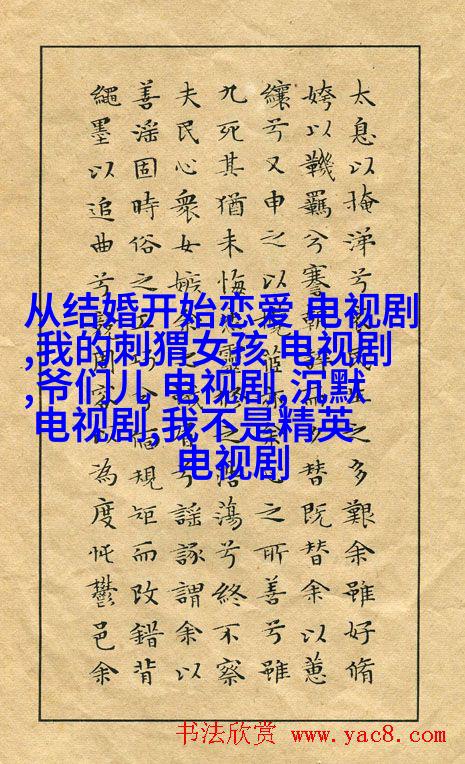 太息以掩涕兮之多艱余雖好脩
姱以鞿羈兮謇朝替既替余以蕙
纕兮又申之以之所善兮雖
九死其猶未悔之浩蕩兮終不察
夫民心衆女嫉兮謠諑謂余以
善淫固時俗之規矩而改錯背
繩墨以追曲兮以為度忳鬱邑余
从结婚开始恋爱 电视剧
,我的刺猬女孩 电视剧
,爷们儿 电视剧,沉默
电视剧,我不是精英
电视剧
书法欣赏 www.yac8.com